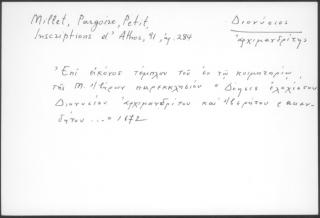 Millet, Pargoire, Petit,
Inscriptions d'Athos, 91, ἀρ. 284
Διονύσιος
ἀρχιμανδρίτης
Ἐπὶ εἰκόνος τέμπλου τοῦ ἐν τῷ κοιμητηρίῳ
τῆς Μ. Ἰβήρων παρεκκλησίου "Δέησις ἐλαχίστου
Διονυσίου ἀρχιμανδρίτου καὶ Ἰβηρίτου
..." 1672